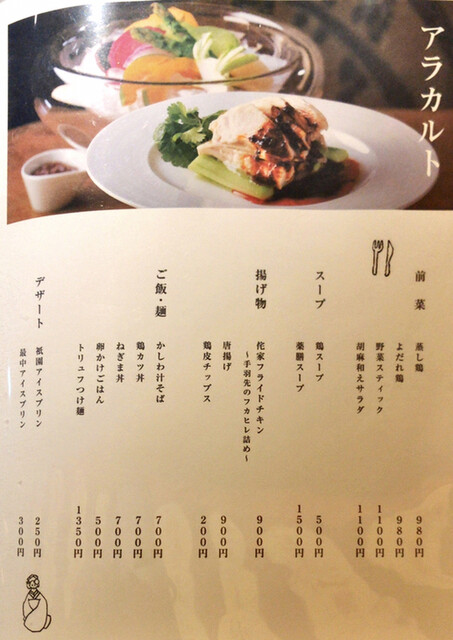 アラカルト
前菜
蒸し鶏 980円
よだれ鶏 980円
野菜スティック 1100円
胡麻和えサラダ 1100円
スープ
鶏スープ 500円
薬膳スープ 1500円
揚げ物
侘家フライドチキン 900円
〜手羽先のフカヒレ詰め〜
唐揚げ 900円
鶏皮チップス 200円
ご飯・麺
かしわ汁そば 700円
鶏カツ丼 700円
ねぎま丼 700円
卵かけごはん 500円
トリュフつけ麺 1350円
デザート
祇園アイスプリン 250円
最中アイスプリン 300円